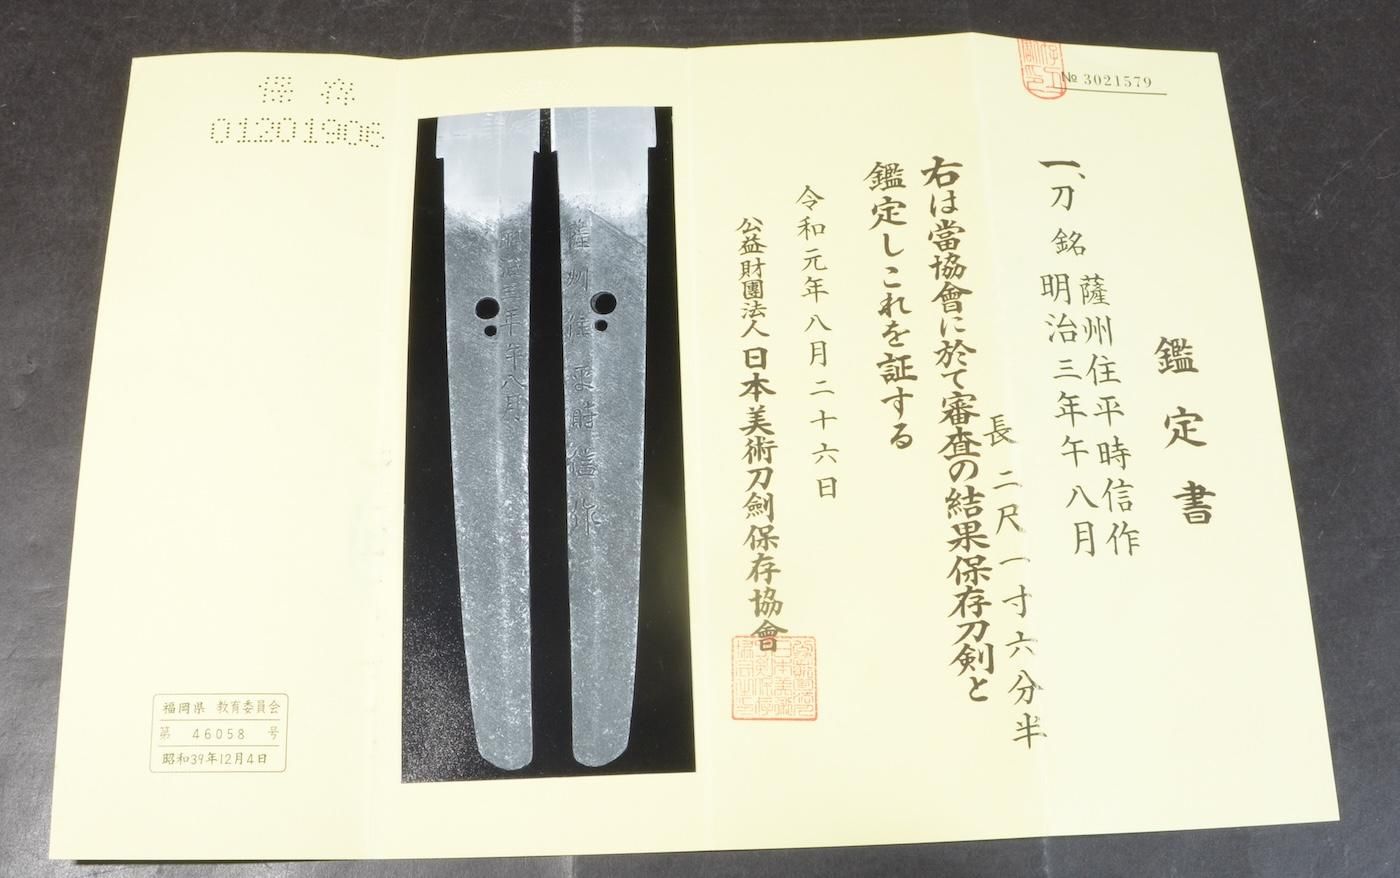 № 3021579
鑑定書
一、刀 銘 薩州住平時信作
明治三年午八月
長 二尺一寸六分半
右は當協會に於て審査の結果保存刀剣と
鑑定しこれを証する
令和元年八月二十六日
公益財團法人 日本美術刀劍保存協會
薩州住平時信作
明治三年午八月
保存
01201906
福岡県 教育委員会
第 46058 号
昭和39年12月4日